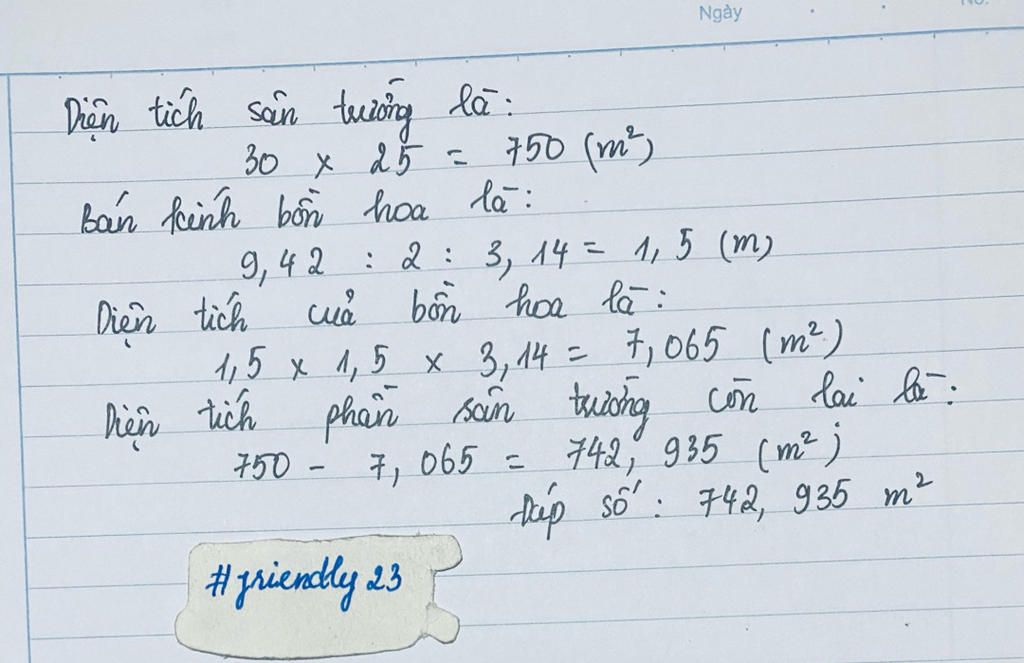 Ngày
No.
Diện tích sân trường là:
30 x 25 = 750 (m²)
Bán kính bồn hoa là:
9,42 : 2 : 3,14 = 1,5 (m)
Diện tích của bồn hoa là:
1,5 x 1,5 x 3,14 = 7,065 (m²)
Diện tích phần sân trường còn lại là:
750 - 7,065 = 742,935 (m²)
Đáp số: 742,935 m²
#friendly23